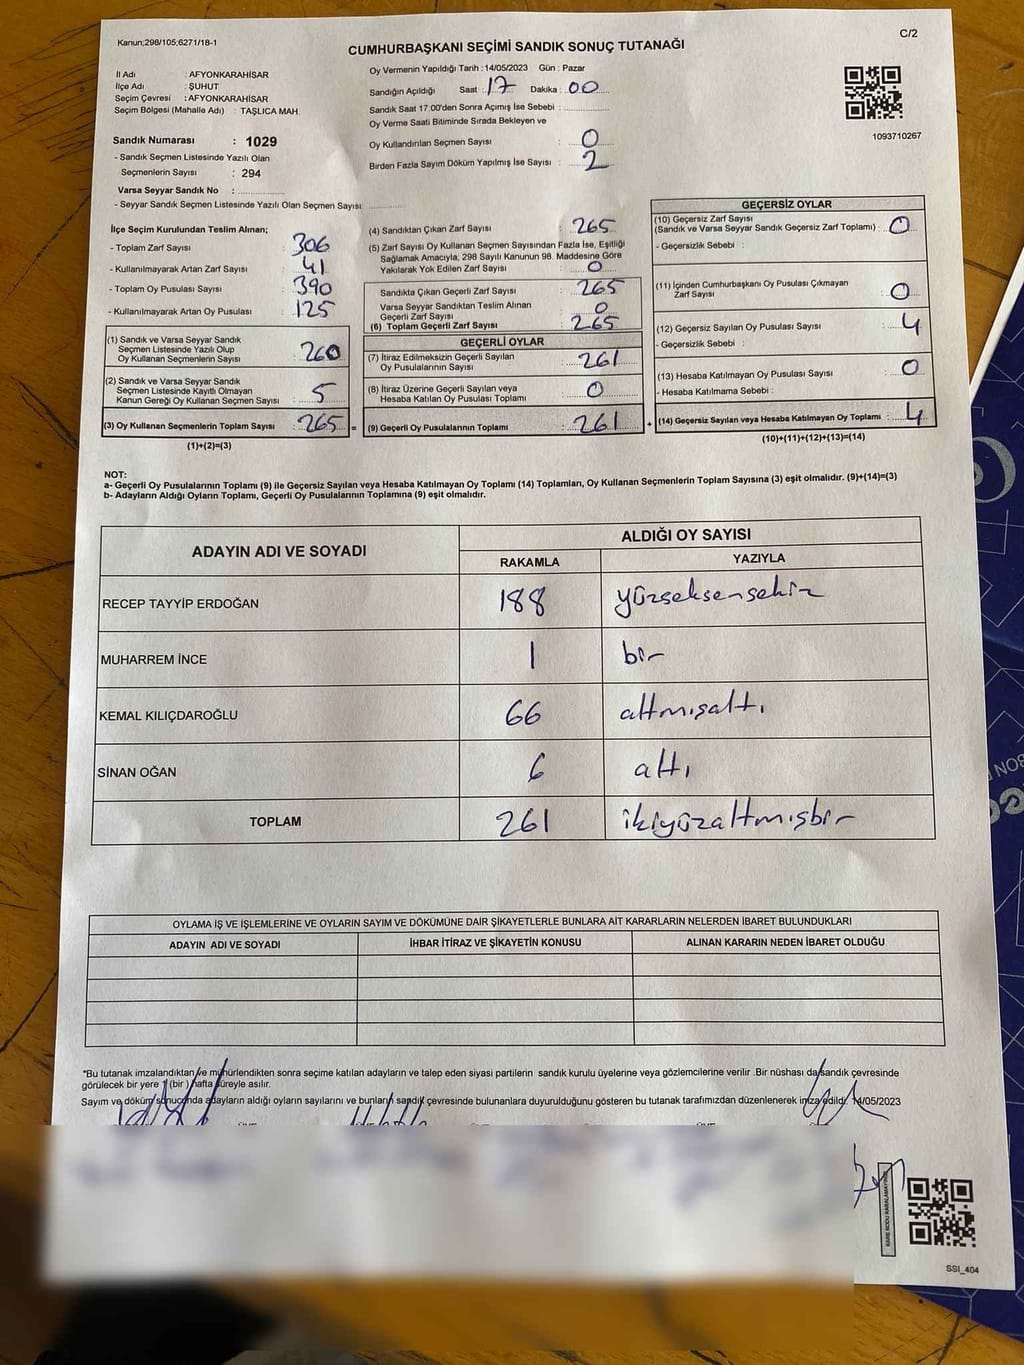 Kanun;298/105;6271/18-1
C/2
CUMHURBAŞKANI SEÇİMİ SANDIK SONUÇ TUTANAĞI
İl Adı : AFYONKARAHİSAR
İlçe Adı : ŞUHUT
Seçim Çevresi : AFYONKARAHİSAR
Seçim Bölgesi (Mahalle Adı) : TAŞLICA MAH.
Sandık Numarası : 1029
- Sandık Seçmen Listesinde Yazılı Olan
Seçmenlerin Sayısı : 294
Varsa Seyyar Sandık No :
- Seyyar Sandık Seçmen Listesinde Yazılı Olan Seçmen Sayısı:
Oy Vermenin Yapıldığı Tarih :14/05/2023 Gün : Pazar
Sandığın Açıldığı Saat : 17 Dakika : 00
Sandık Saat 17:00'den Sonra Açımış İse Sebebi :
Oy Verme Saati Bitiminde Sırada Bekleyen ve
Oy Kullandırılan Seçmen Sayısı : 0
Birden Fazla Sayım Döküm Yapılmış İse Sayısı : 2
1093710267
İlçe Seçim Kurulundan Teslim Alınan;
- Toplam Zarf Sayısı : 306
- Kullanılmayarak Artan Zarf Sayısı : 41
- Toplam Oy Pusulası Sayısı : 390
- Kullanılmayarak Artan Oy Pusulası : 125
(1) Sandık ve Varsa Seyyar Sandık
Seçmen Listesinde Yazılı Olup
Oy Kullanan Seçmenlerin Sayısı : 260
(2) Sandık ve Varsa Seyyar Sandık
Seçmen Listesinde Kayıtlı Olmayan
Kanun Gereği Oy Kullanan Seçmen Sayısı : 5
(3) Oy Kullanan Seçmenlerin Toplam Sayısı : 265 =
(1)+(2)=(3)
(4) Sandıktan Çıkan Zarf Sayısı : 265
(5) Zarf Sayısı Oy Kullanan Seçmen Sayısından Fazla İse, Eşitliği
Sağlamak Amacıyla, 298 Sayılı Kanunun 98. Maddesine Göre
Yakılarak Yok Edilen Zarf Sayısı : 0
Sandıkta Çıkan Geçerli Zarf Sayısı : 265
Varsa Seyyar Sandıktan Teslim Alınan
Geçerli Zarf Sayısı : 0
(6) Toplam Geçerli Zarf Sayısı : 265
GEÇERLİ OYLAR
(7) İtiraz Edilmeksizin Geçerli Sayılan
Oy Pusulalarının Sayısı : 261
(8) İtiraz Üzerine Geçerli Sayılan veya
Hesaba Katılan Oy Pusulası Toplamı : 0
(9) Geçerli Oy Pusulalarının Toplamı : 261 +
GEÇERSİZ OYLAR
(10) Geçersiz Zarf Sayısı
(Sandık ve Varsa Seyyar Sandık Geçersiz Zarf Toplamı) : 0
- Geçersizlik Sebebi :
(11) İçinden Cumhurbaşkanı Oy Pusulası Çıkmayan
Zarf Sayısı : 0
(12) Geçersiz Sayılan Oy Pusulası Sayısı : 4
- Geçersizlik Sebebi :
(13) Hesaba Katılmayan Oy Pusulası Sayısı : 0
- Hesaba Katılmama Sebebi :
(14) Geçersiz Sayılan veya Hesaba Katılmayan Oy Toplamı : 4
(10)+(11)+(12)+(13)=(14)
NOT:
a- Geçerli Oy Pusulalarının Toplamı (9) ile Geçersiz Sayılan veya Hesaba Katılmayan Oy Toplamı (14) Toplamları, Oy Kullanan Seçmenlerin Toplam Sayısına (3) eşit olmalıdır. (9)+(14)=(3)
b- Adayların Aldığı Oyların Toplamı, Geçerli Oy Pusulalarının Toplamına (9) eşit olmalıdır.
ADAYIN ADI VE SOYADI ALDIĞI OY SAYISI
RAKAMLA YAZIYLA
RECEP TAYYİP ERDOĞAN 188 yüzseksensekiz
MUHARREM İNCE 1 bir
KEMAL KILIÇDAROĞLU 66 altmışaltı
SİNAN OĞAN 6 altı
TOPLAM 261 ikiyüzaltmışbir
OYLAMA İŞ VE İŞLEMLERİNE VE OYLARIN SAYIM VE DÖKÜMÜNE DAİR ŞİKAYETLERLE BUNLARA AİT KARARLARIN NELERDEN İBARET BULUNDUKLARI
ADAYIN ADI VE SOYADI İHBAR İTİRAZ VE ŞİKAYETİN KONUSU ALINAN KARARIN NEDEN İBARET OLDUĞU
*Bu tutanak imzalandıktan ve mühürlendikten sonra seçime katılan adayların ve talep eden siyasi partilerin sandık kurulu üyelerine veya gözlemcilerine verilir .Bir nüshası da sandık çevresinde
görülecek bir yere 1 (bir) hafta süreyle asılır.
Sayım ve döküm sonucunda adayların aldığı oyların sayılarını ve bunların sandık çevresinde bulunanlara duyurulduğunu gösteren bu tutanak tarafımızdan düzenlenerek imza edildi. 14/05/2023
KARE KODU KARALAMAYINIZ
SSİ_404